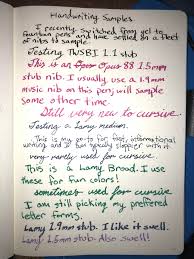 Handwriting Samples
I recently switched from gel to
fountain pens and have settled on a fleet
of nibs to sample.
Testing TWSBI 1.1 stub
This is an Opus 88 1.5mm
stub nib. I usually use a 1.9mm
music nib on this pen will sample
some other time.
Still very new to cursive.
Testing a Lamy medium.
This is my go to for fast, informational
writing and it may be sloppier with it
very rarely used for cursive.
This is a Lamy Broad. I use
these for fun colors!
sometimes used for cursive
I am still picking my preffered
letter forms.
Lamy 1.9mm stub. I like it swell.
Lamy 1.5mm stub. Also swell!